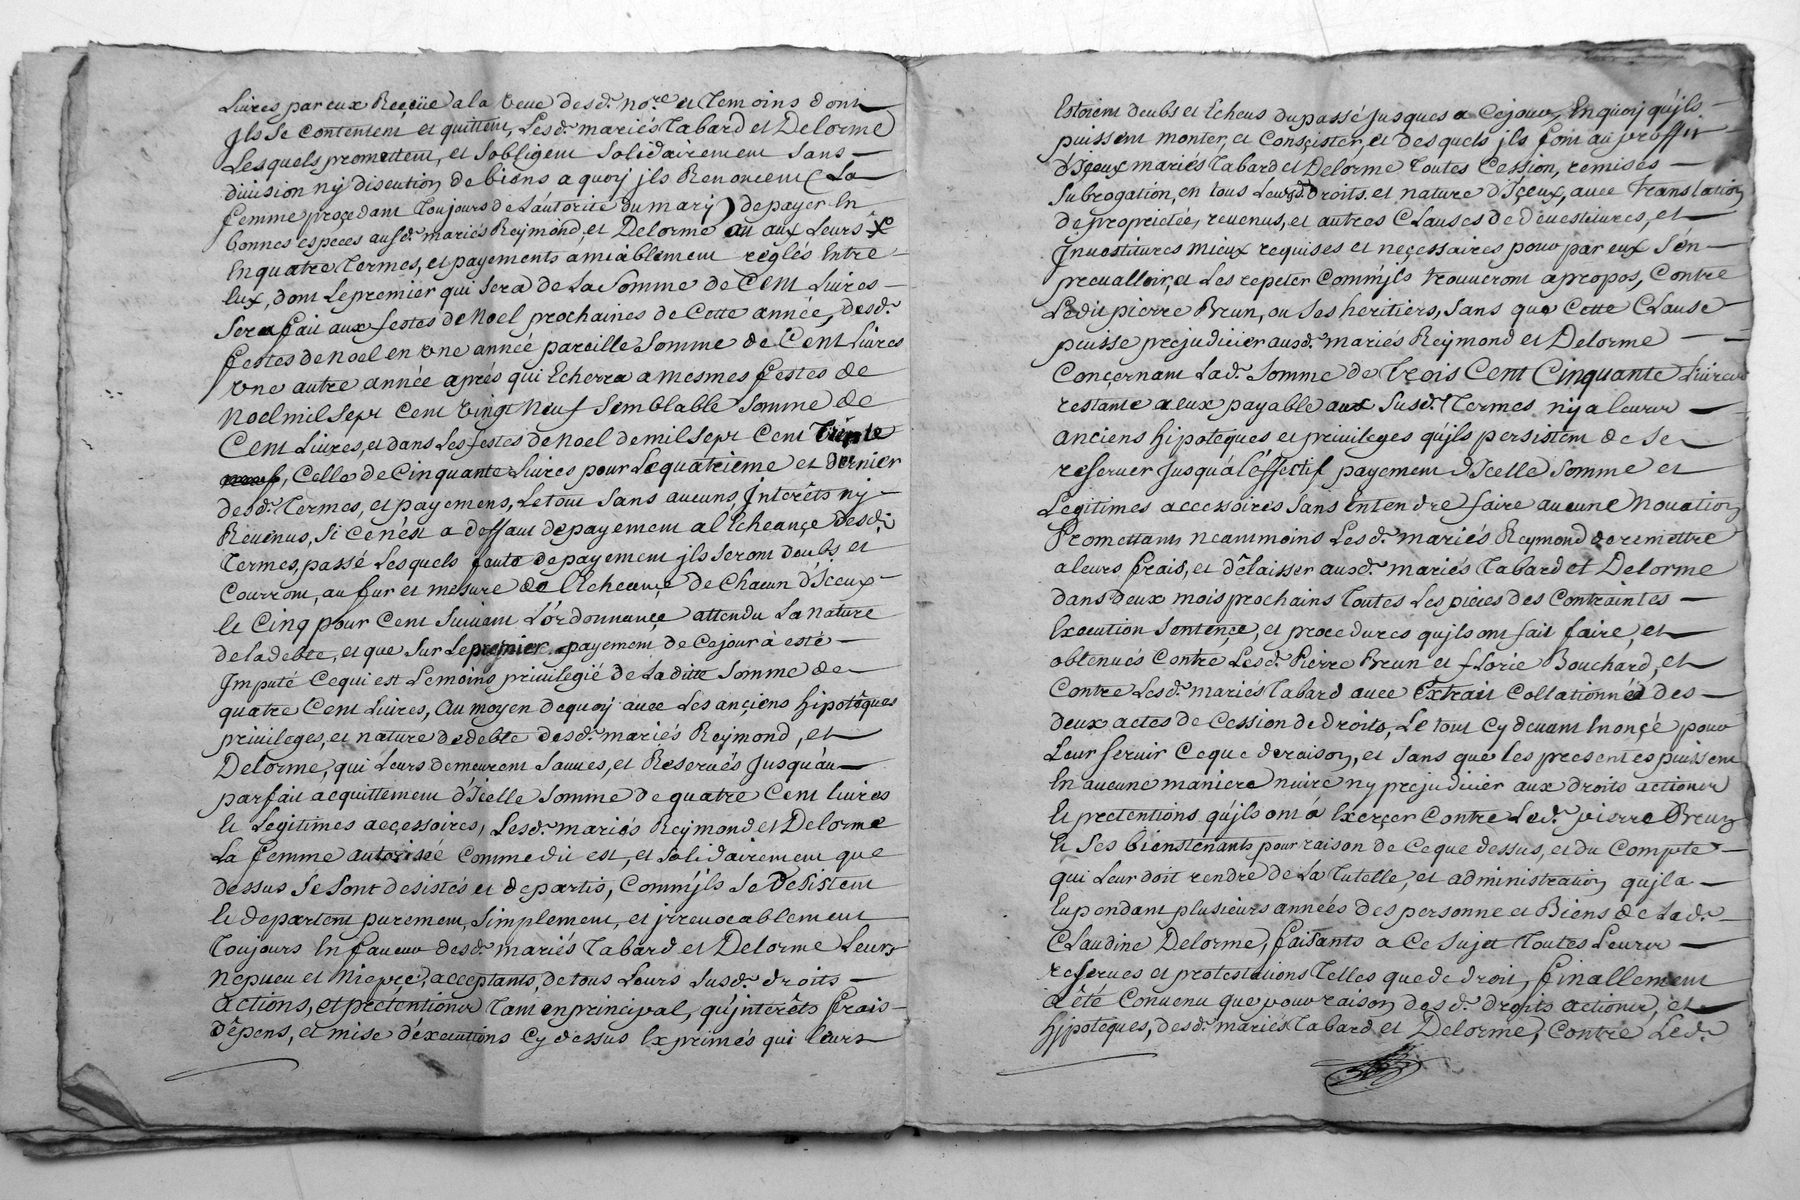 Livres par eux Reçüe a la veue desd. no.re et Temoins dont
Jls se contentent, et quittent, Lesd. mariés Tabard et Delorme
Lesquels promettent, et sobligent solidairement sans
division ny discution de biens a quoy jls Renoncent (La
femme proçedant Toujours de Lautorité du mary) de payer En
bonnes especes ausd. mariés Reymond, et Delorme ou aux Leurs
En quatre Termes, et payements amiáblement reglés Entre
Eux, dont Le premier qui sera de La Somme de Cent Livres
Sera fait aux festes de Noel prochaines de Cette année, desd.
festes de noel en vne année pareille Somme de Cent Livres
vne autre année aprés qui Echerra a mesmes festes de
Noel mil sept cent vingt neuf semblable somme de
Cent Livres, et dans Les festes de Noel de mil sept Cent Trente
Celle de Cinquante Livres pour Le quatrieme et dernier
desd. Termes, et payemens, Le tout sans aucuns Jnterêts ny
Revenus, Si ce n'est a deffaut de payement a l'Echeançe desd.
Termes, passé Lesquels faute de payement jls seront deubs et
Courront, au fur et mesure de l'Echeançe de Chacun d'Iceux
le Cinq pour Cent Suivant L'ordonnançe attendu La nature
de la debte, et que sur Le premier payement de ce jour à esté
Jmputé Ce qui est Le moins privilegié de La ditte Somme de
quatre Cent Livres, au moyen de quoy avec Les ançiens hipotêques
privileges, et nature de debte desd. mariés Reymond, et
Delorme, qui Leurs demeurent Sauves, et Reservés Jusqu'au
parfait acquittement d'Icelle Somme de quatre Cent livres
et Legitimes accessoires, Lesd. mariés Reymond et Delorme
La femme autorisée Comme dit est, et solidairement que
dessus Se sont desistés et departis, Comm'jls Se desistent
et departent purement, simplement, et jrrevocablement
Toujours En faveur desd. mariés Tabard et Delorme Leurs
Nepveu et Niepçe, acceptants, de tous Leurs susd. droits
actions, et pretentions Tant en principal, qu'interêts frais
Dêpens, et mise d'executions Cy dessus Exprimés qui leurs
Estoient deubs et Echeus du passé jusques a Ce jour, En quoy qu'jls
puissent monter, et Consçister, et desquels jls font au proffit
d'Içeux mariés Tabard et Delorme Toutes Cession, remises
Subrogation, en tous Leursd. droits et nature d'Içeux, avec translation
de proprietée, revenus, et autres Clauses de devestitures, et
Jnvestitures mieux requises et neçessaires pour par eux s'en
prevalloir, et Les repeter Comm'jls trouveront apropos, Contre
Ledit pierre Brun, ou Ses heritiers, sans que Cette Clause
puisse prejudicier ausd. mariés Reymond et Delorme
Conçernant Lad. Somme de Trois Cent Cinquante Livres
restante a eux payable aux susd. Termes ny a leurs
anciens hipotêques et privileges qu'jls persistent de se
reserver Jusqu'à l'effectif payement d'Icelle Somme et
Legitimes accessoires sans Entendre faire aucune Novation
Promettants neantmoins Lesd. mariés Reymond de remettre
a leurs frais, et délaisser ausd. mariés Tabard et Delorme
dans deux mois prochains Toutes Les pièces des Contraintes
Execution Sentençe, et procedures qu'jls ont fait faire, et
obtenués Contre Lesd. Pierre Brun et florie Bouchard, et
Contre Lesd. mariés Tabard avec Extrait Collationnés des
deux actes de Cession de droits, Le tout Cy devant Enonçé pour
Leur servir Ce que de raison, et sans que les presentes puissent
En aucune maniere nuire ny prejudicier aux droits actions
Et pretentions qu'jls ont á Exerçer Contre Led. pierre Brun
Et Ses bienstenants pour raison de Ce que dessus, et du Compte
qui Leur doit rendre de La Tutelle, et administration qu'jl a
Eu pendant plusieurs années des personne et Biens de Lad.
Claudine Delorme, faisants a Ce sujet Toutes Leurs
reserves et protestations Telles que de droit, finallement
à été Convenu que pour raison desd. droits actions, et
hypotêques, desd. mariés Tabard et Delorme, Contre Led.